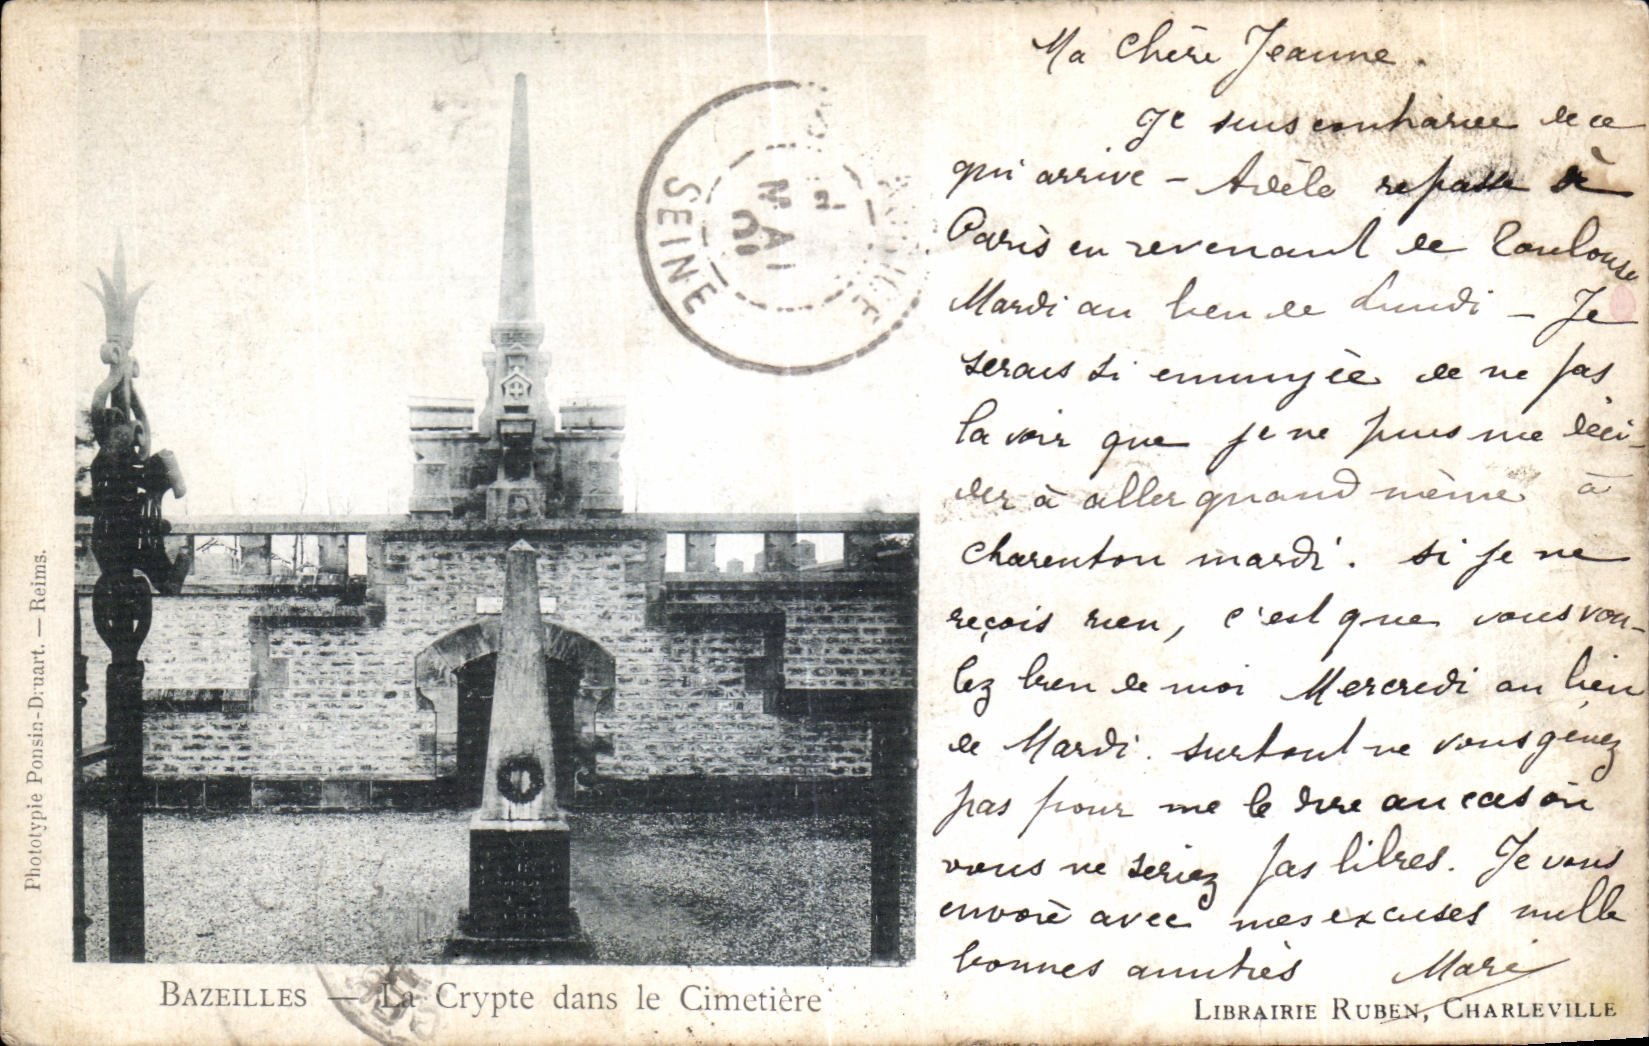 Ma Chère Jeanne.
Je suis contrariée de ce
qui arrive - Adèle repasse à
Paris en revenant de Toulouse
Mardi au lieu de Lundi - Je
serais si ennuyée de ne pas
la voir que je ne puis me déci-
der à aller quand même à
Charenton mardi. si je ne
reçois rien, c'est que vous vou-
lez bien de moi Mercredi au lieu
de Mardi. surtout ne vous gênez
pas pour me le dire au cas où
vous ne seriez pas libres. Je vous
envoie avec mes excuses mille
bonnes amitiés Marie
SEINE
MAI
Phototypie Ponsin-Druart. — Reims.
BAZEILLES — La Crypte dans le Cimetière
LIBRAIRIE RUBEN, CHARLEVILLE